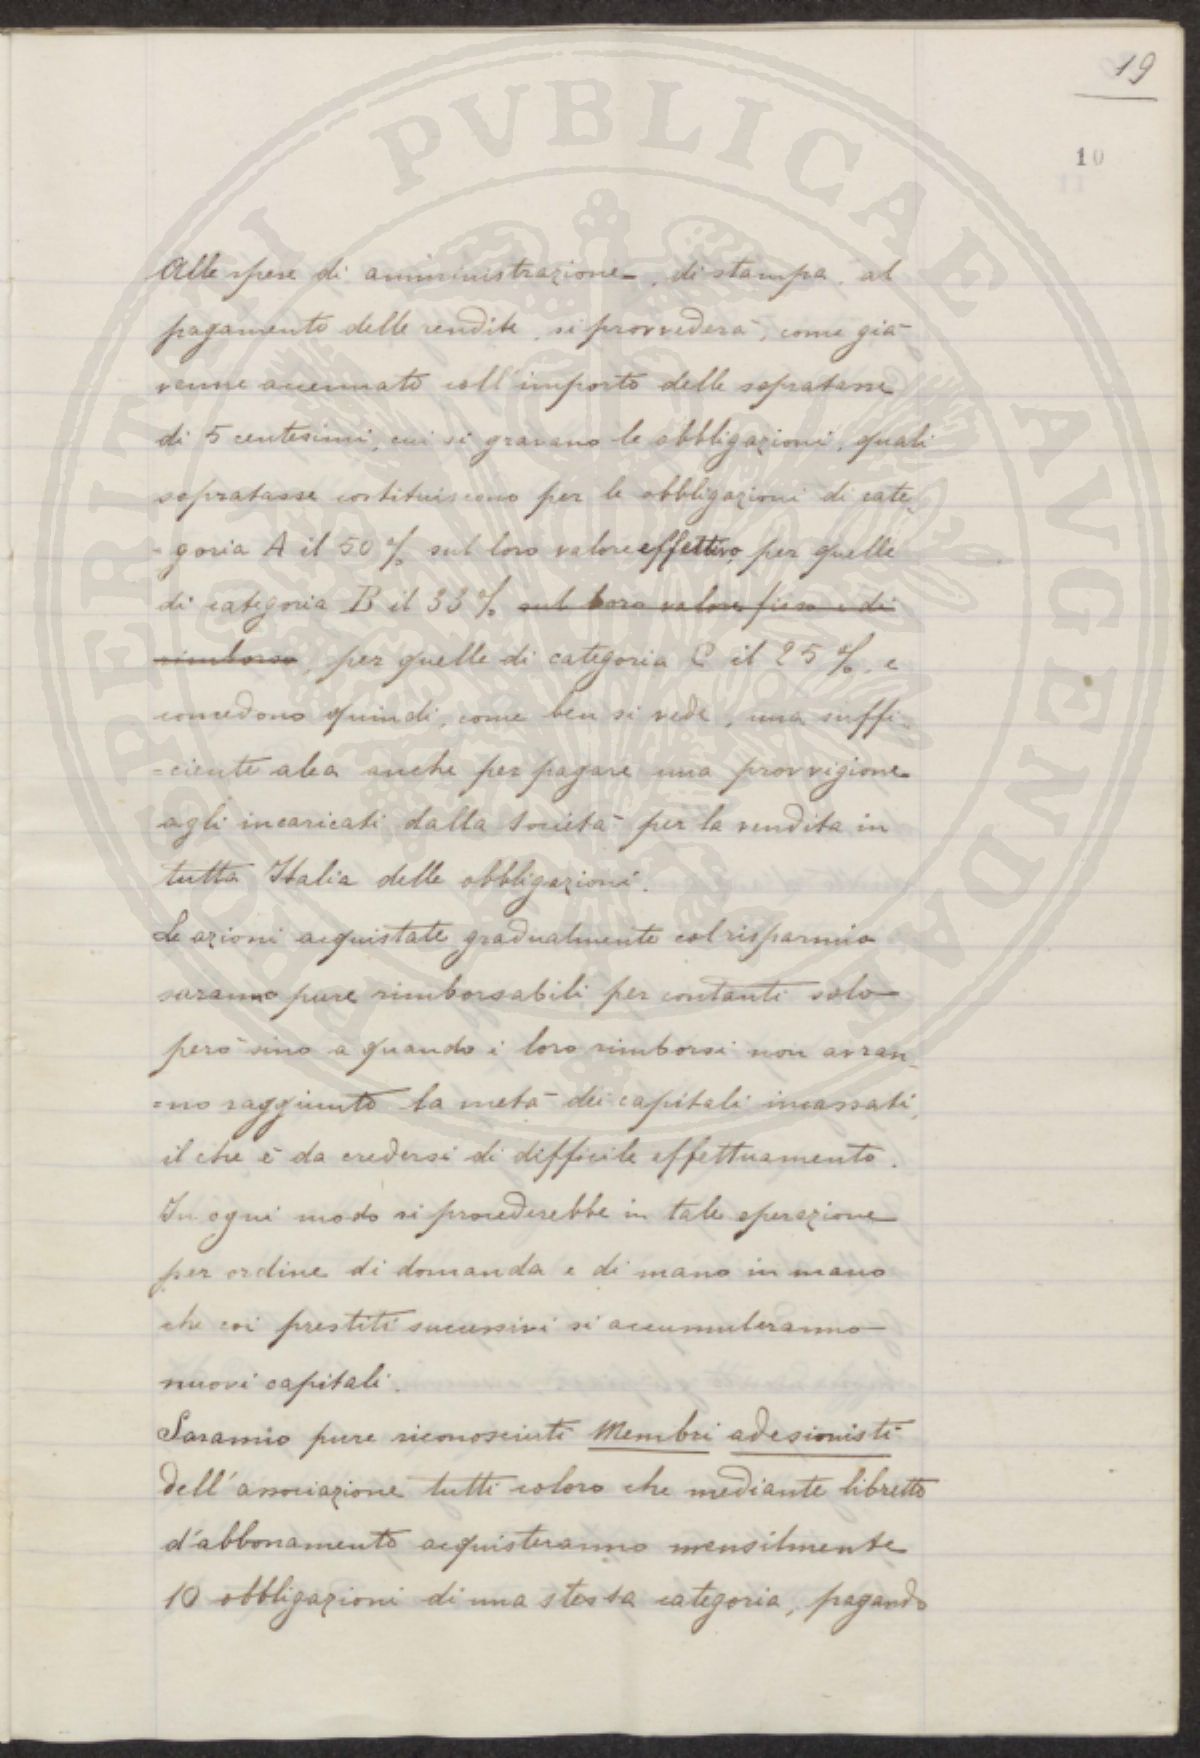 19
10
11
PERPETRANDAE PERITATI PVBLICAE AVGENDAE
Alle spese di amministrazione, di stampa, al
pagamento delle rendite, si provvederà, come già
venne accennato coll'importo delle sopratasse
di 5 centesimi, cui si gravano le obbligazioni, quali
sopratasse costituiscono per le obbligazioni di cate-
=goria A il 50 % sul loro valore effettivo, per quelle
di categoria B il 33 % sul loro valore fisso e di
rimborso, per quelle di categoria C il 25 %, e
concedono quindi, come ben si vede, una suffi-
=ciente alea anche per pagare una provvigione
agli incaricati dalla Società per la vendita in
tutta Italia delle obbligazioni.
Le azioni acquistate gradualmente col risparmio
saranno pure rimborsabili per contanti solo
però sino a quando i loro rimborsi non avran-
=no raggiunto la metà dei capitali incassati,
il che è da credersi di difficile effettuamento.
In ogni modo si procederebbe in tale operazione
per ordine di domanda e di mano in mano
che coi prestiti successivi si accumuleranno
nuovi capitali.
Saranno pure riconosciuti Membri adesionisti
dell'associazione tutti coloro che mediante libretto
d'abbonamento acquisteranno mensilmente
10 obbligazioni di una stessa categoria, pagando